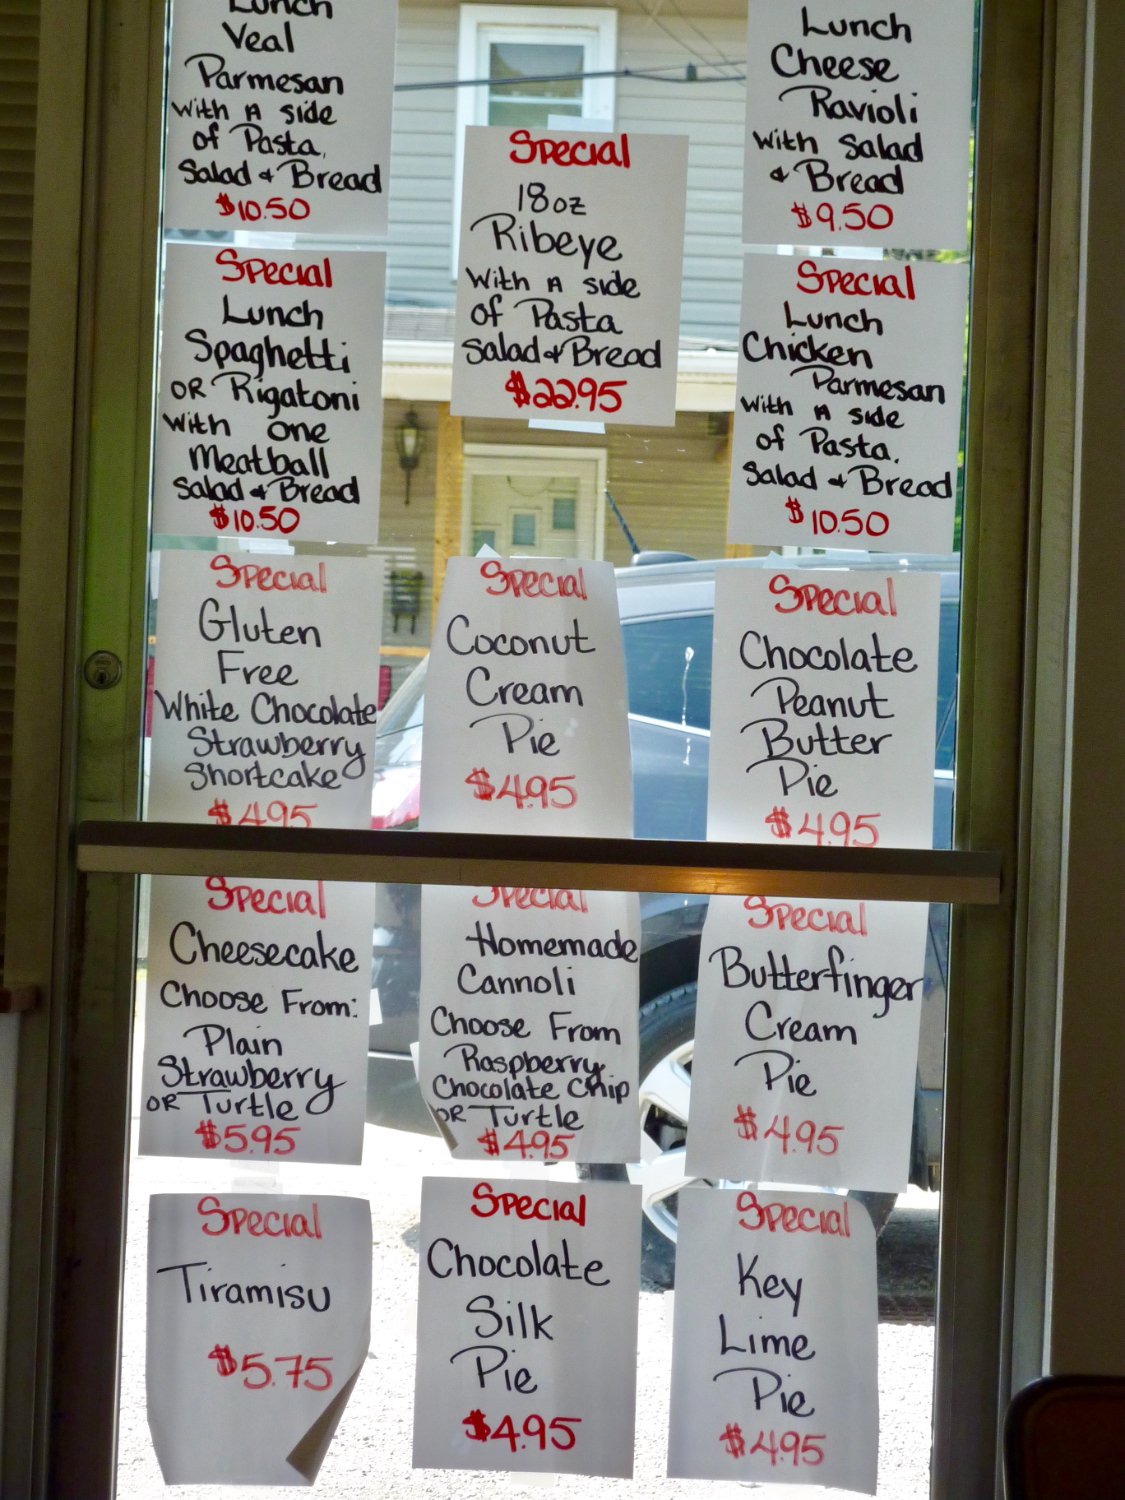 Lunch
Veal
Parmesan
With A side
of Pasta,
Salad & Bread
$10.50
Special
18oz
Ribeye
With A side
of Pasta
Salad & Bread
$22.95
Lunch
Cheese
Ravioli
With Salad
& Bread
$9.50
Special
Lunch
Spaghetti
OR Rigatoni
With one
Meatball
Salad & Bread
$10.50
Special
Lunch
Chicken
Parmesan
With A side
of Pasta.
Salad & Bread
$10.50
Special
Gluten
Free
White Chocolate
Strawberry
Shortcake
$4.95
Special
Coconut
Cream
Pie
$4.95
Special
Chocolate
Peanut
Butter
Pie
$4.95
Special
Cheesecake
Choose From:
Plain
Strawberry
OR Turtle
$5.95
Special
Homemade
Cannoli
Choose From
Raspberry
Chocolate Chip
OR Turtle
$4.95
Special
Butterfinger
Cream
Pie
$4.95
Special
Tiramisu
$5.75
Special
Chocolate
Silk
Pie
$4.95
Special
Key
Lime
Pie
$4.95